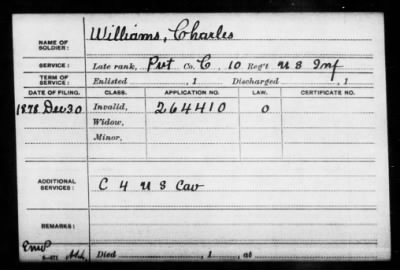 NAME OF SOLDIER: Williams, Charles
SERVICE: Late rank, Pvt Co. C, 10 Reg't U S Inf
TERM OF SERVICE: Enlisted , 1 Discharged , 1
DATE OF FILING. CLASS. APPLICATION NO. LAW. CERTIFICATE NO.
1878 Dec 30 Invalid, 264410 0
Widow,
Minor,
ADDITIONAL SERVICES: C 4 U S Cav
REMARKS:
Died , 1 , at